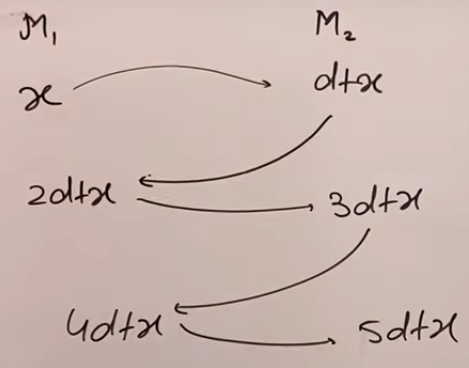 M₁ M₂
x d+x
2d+x 3d+x
4d+x 5d+x